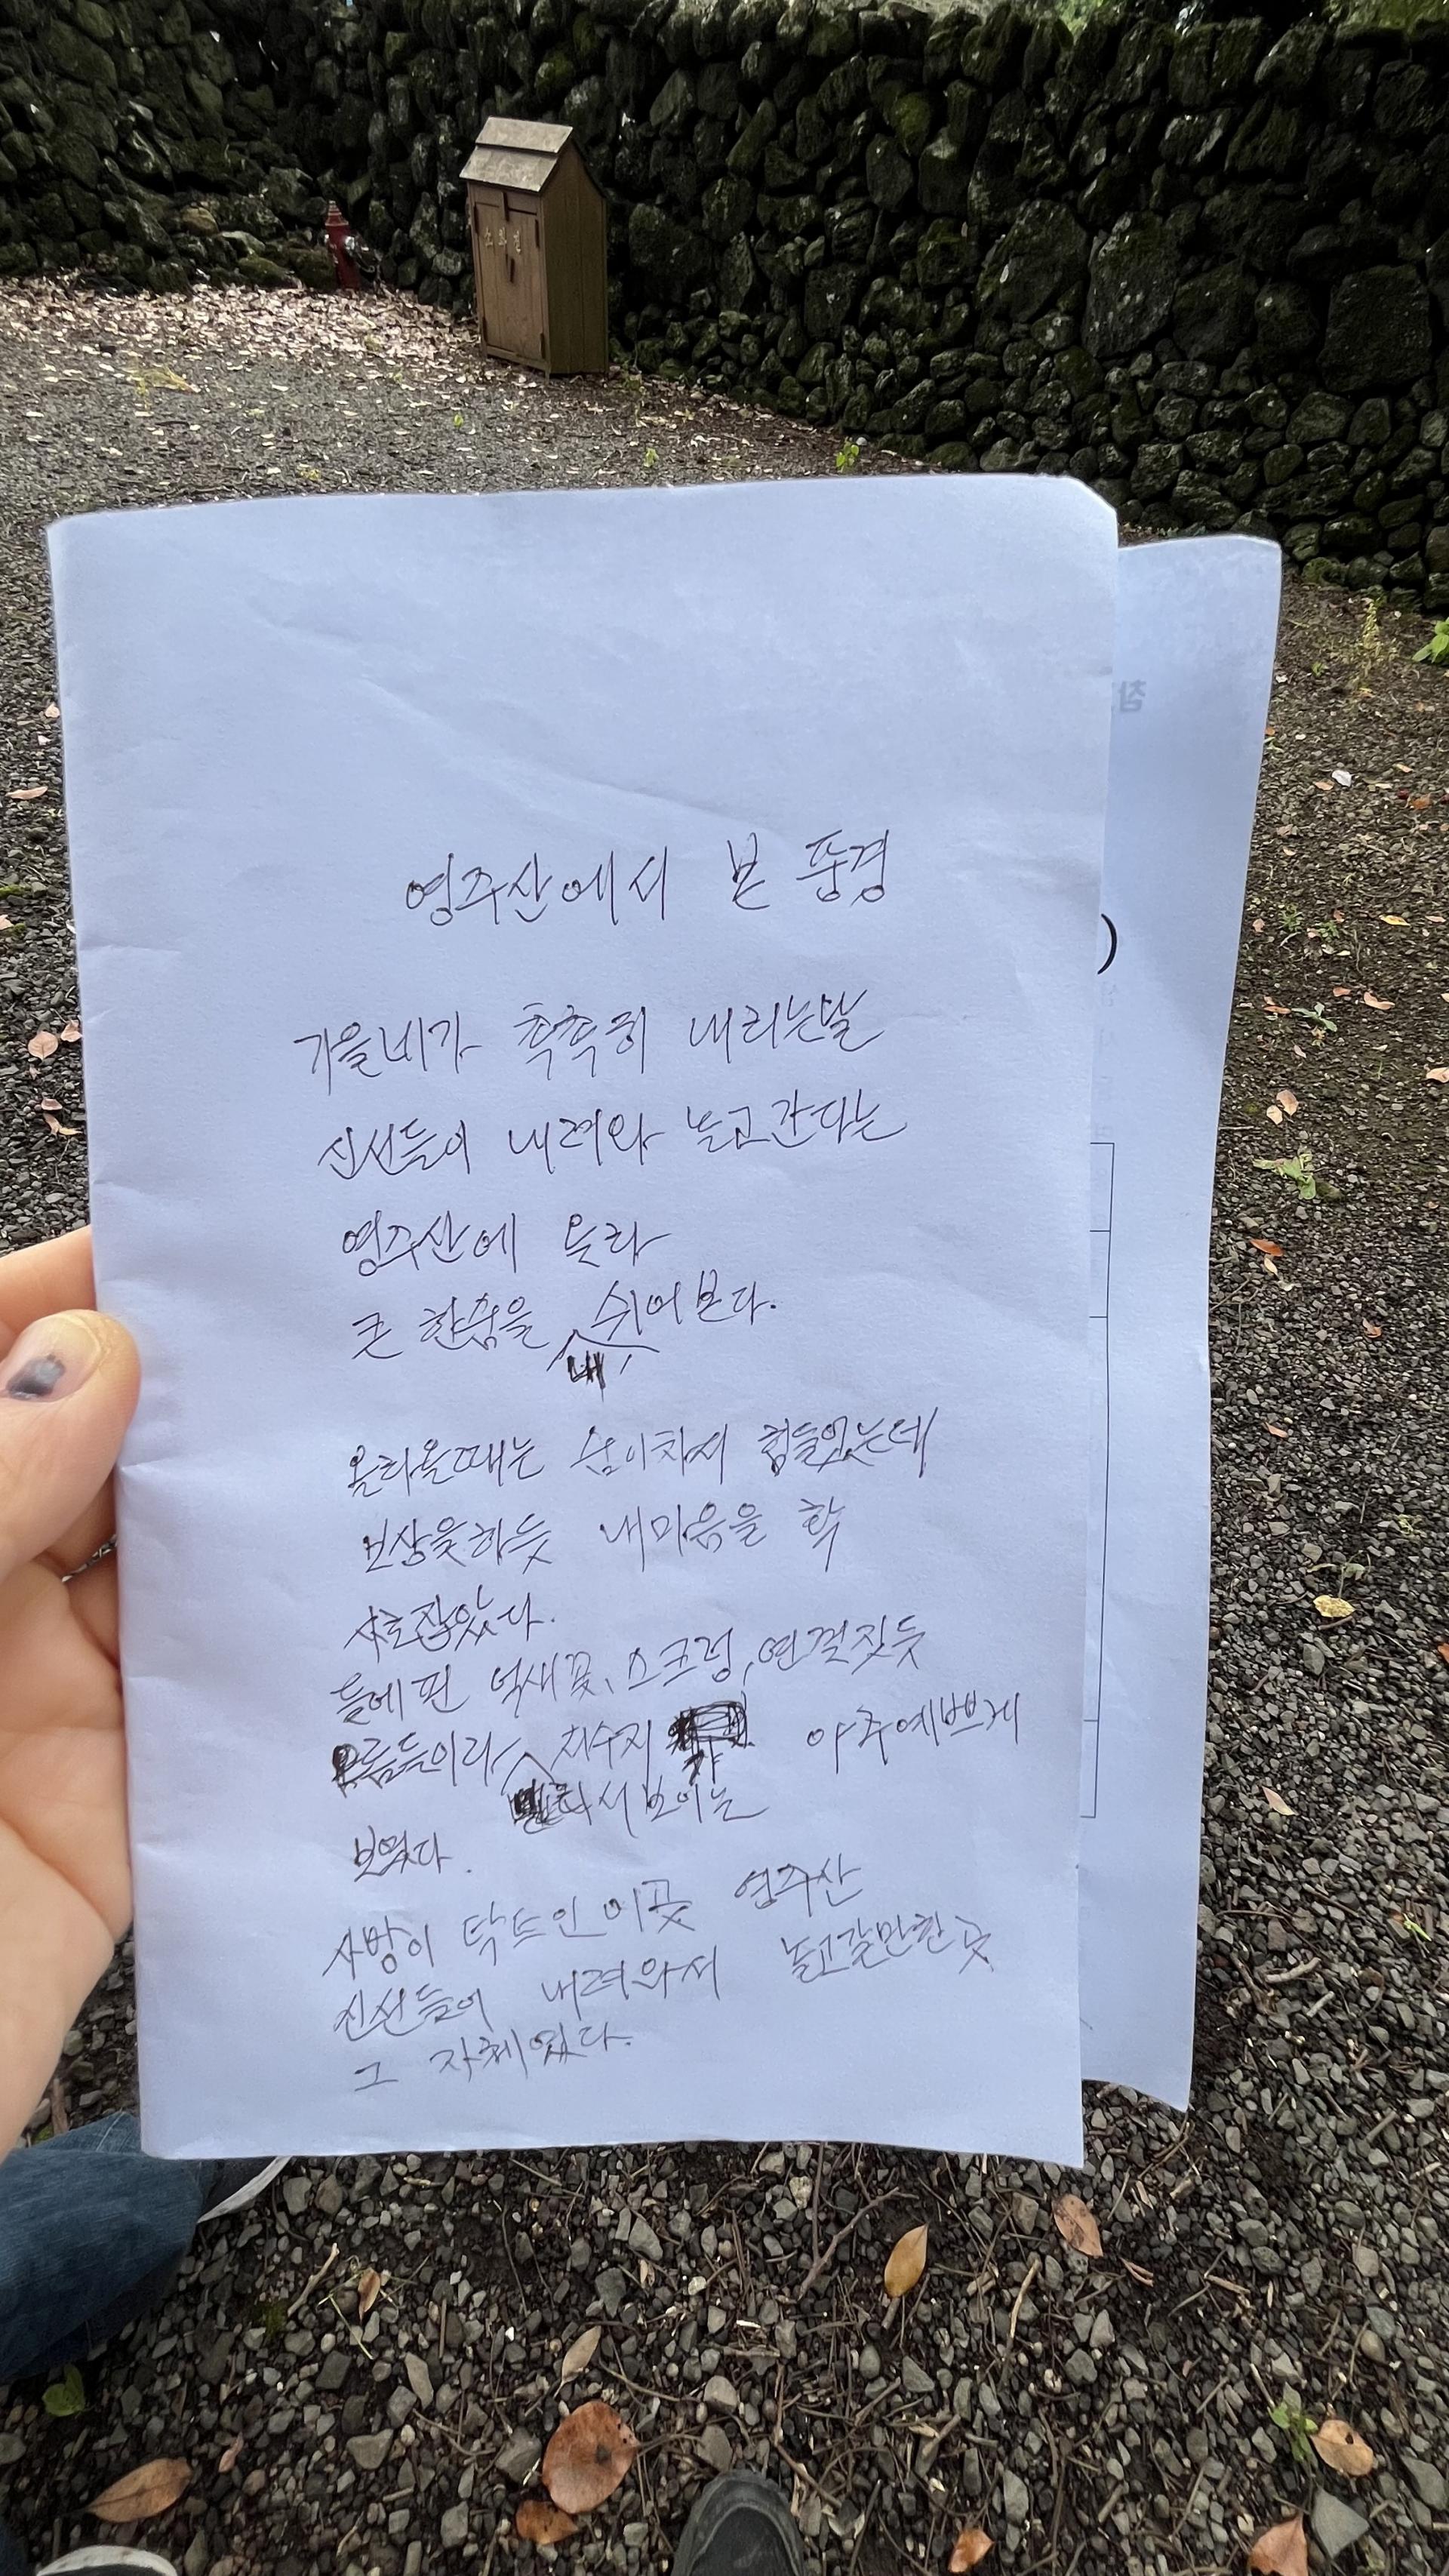 소화전
영주산에서 본 풍경
가을비가 촉촉히 내리는날
신선들이 내려와 놀고간다는
영주산에 올라
큰 한숨을 쉬어본다.
올라올때는 숨이차서 힘들었는데
보상을하듯 내마음을 확
사로잡았다.
들에핀 억새꽃, 스크렁, 연결짓듯
오름들이라 저수지 아주예쁘게
서보이는
보였다.
사방이 탁트인이곳 영주산
신선들이 내려와서 놀고갈만한곳
그 자체였다.